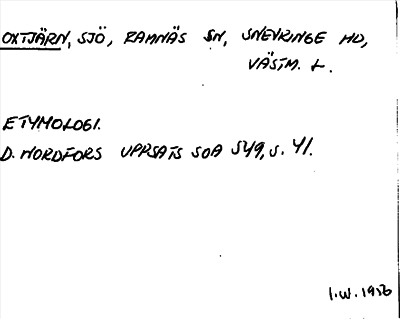 OXTJÄRN, SJÖ, RAMNÄS SN, SNEVRINGE HD,
VÄSTM. L.
ETYMOLOGI.
D. NORDFORS UPPSATS SOA 549, s. 41.
I.W. 1956